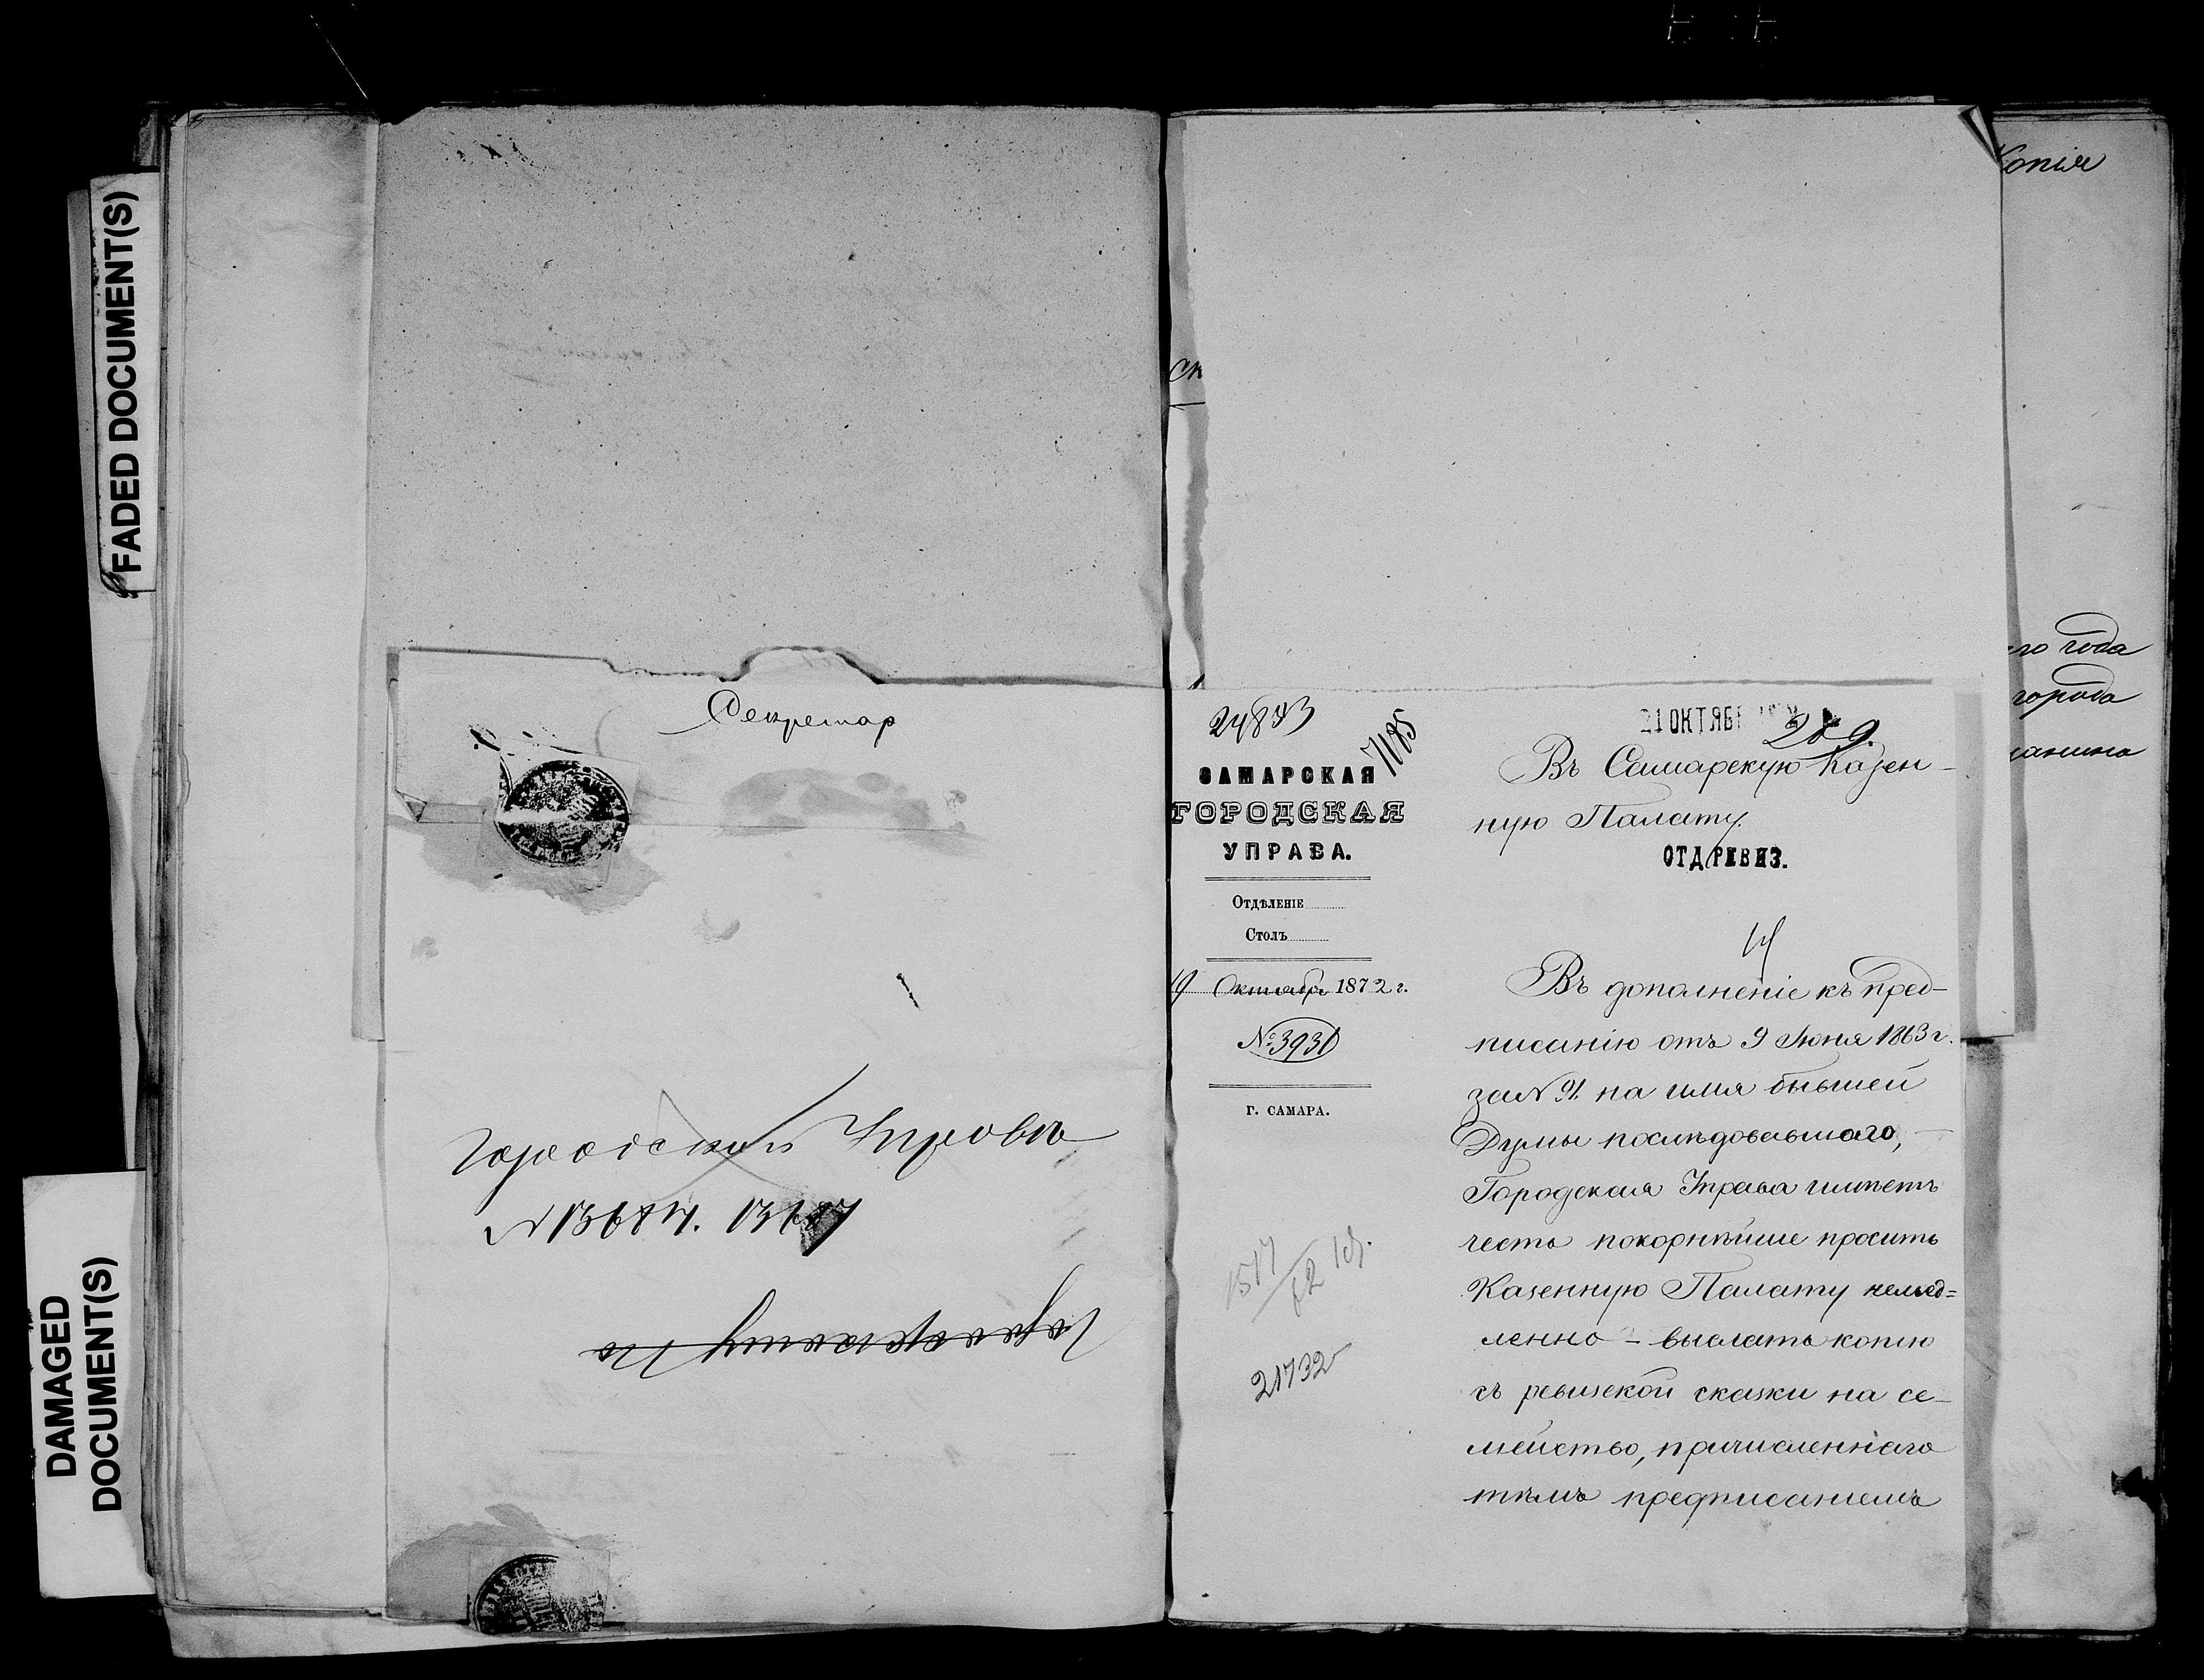 FADED DOCUMENT(S)
DAMAGED
DOCUMENT(S)
Секретар
Городской Управы
N 13684. 13687
24843
7185
САМАРСКАЯ
ГОРОДСКАЯ
УПРАВА.
Отдѣленіе
Столъ
19 Октября 1872 г.
№ 3931
г. САМАРА.
21732
21 ОКТЯБ
289.
Въ Самарскую Казен-
ную Палату.
ОТД. РЕВИЗ.
Въ дополненіе къ пред-
писанію отъ 9 Июня 1863 г.
за N 91. на имя бывшей
Думы послѣдовавшаго,
Городская Управа имѣетъ
честь покорнѣйше просить
Казенную Палату немед=
ленно - выслать копію
съ ревизской сказки на се-
мейство, причисленнаго
тѣмъ предписаніемъ
Копія
го года
города